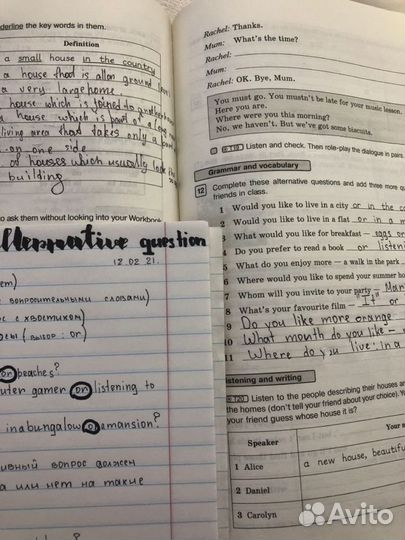 derline the key words in them.
Definition
a small house in the country
a house that is all on ground
a very large home
house which is joined to another
a house which is part of a long row
living area that takes only a
on one side
of houses which usually look the
building
to ask them without looking into your Workbook.
Alternative question
12.02.21.
вопросительными словами)
с хвостиком)
(выбор: or)
or peaches?
uter gamer or listening to
in a bungalow or a mansion?
вный вопрос должен
а или нет на такие
Rachel: Thanks.
Mum: What's the time?
Rachel:
Mum:
Rachel: OK. Bye, Mum.
You must go. You mustn't be late for your music lesson.
Here you are.
Where were you this morning?
No, we haven't. But we've got some biscuits.
Listen and check. Then role-play the dialogue in pairs.
Grammar and vocabulary
12 Complete these alternative questions and add three more qu
friends in class.
1 Would you like to live in a city or in the co
2 Would you like to live in a flat or in a m
3 What would you like for breakfast – eggs or
4 Do you prefer to read a book or listeni
5 What do you enjoy more – a walk in the park
6 Where would you like to spend your summer ho
7 Whom will you invite to your party – Mar
8 What's your favourite film – "It" or
9 Do you like more orange
10 What month do you like –
11 Where do you live: in a
istening and writing
Listen to the people describing their houses a
the homes (don't tell your friend about your choice). You
your friend guess whose house it is?
Speaker
Your n
1 Alice
a new house, beautiful
2 Daniel
3 Carolyn
Avito